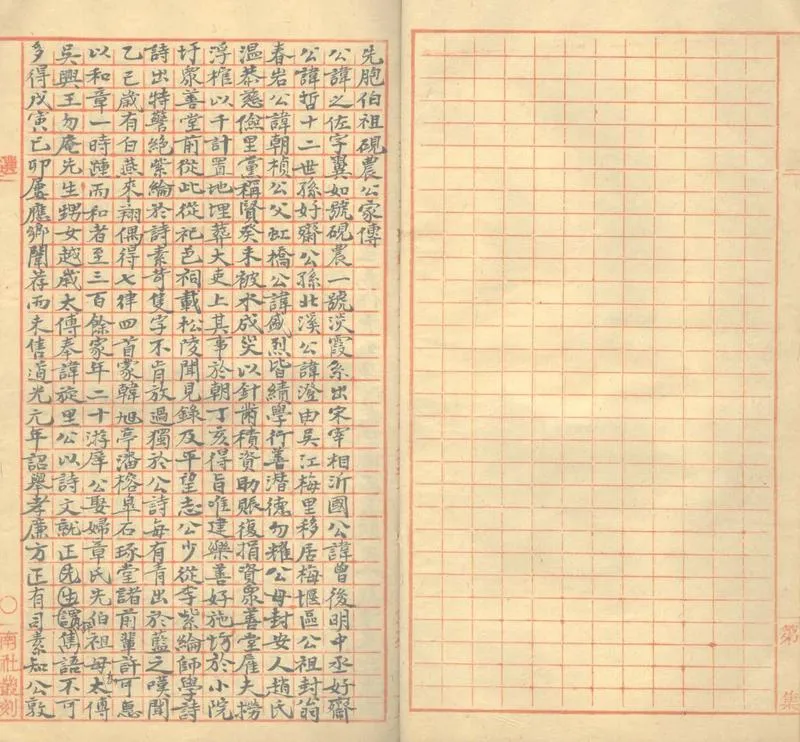 先胞伯祖硯農公家傳
公諱之佐字翼如號硯農一號淡霞系出宋宰相沂國公諱曾後明中丞好齋
公諱哲十二世孫好齋公孫北溪公諱澄由吳江梅里移居梅堰區公祖封翁
春岩公諱朝楨公父虹橋公諱盛烈皆績學行善潛德勿耀公母封安人趙氏
溫恭慈儉里黨稱賢癸未被水成災以針黹積資助賑復捐資眾善堂雇夫撈
浮棺以千計置地埋葬大吏上其事於朝丁亥得旨唯建樂善好施坊於小院
圩眾善堂前從此從祀邑祠載松陵聞見錄及平望志公少從李紫綸師學詩
詩出特驚絕紫綸於詩素苛隻字不肯放過獨於公詩每有青出於藍之嘆聞
乙巳歲有白燕來翔偶得七律四首蒙韓旭亭潘榕皋石琢堂諸前輩許可悤
以和章一時踵而和者至三百餘家年二十游庠公娶婦章氏先伯祖母太傅
吳興王勿庵先生甥女越歲太傅奉諱旋里公以詩文就正先生謂雋語不可
多得戊寅己卯屢應鄉闈荐而未售道光元年詔舉孝廉方正有司素知公敦
選
南社叢刻
第
集